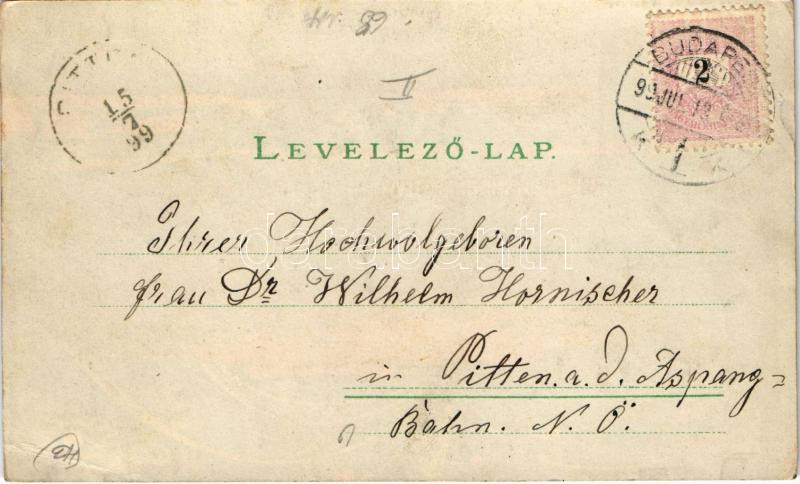 BUDAPEST
2
99 JUL
15
7
99
II
LEVELEZŐ-LAP.
Ihrer Hochwolgeboren
frau Dr Wilhelm Hornischer
in Pitten a. d. Aspang=
Bahn. N. Ö.
darabanth